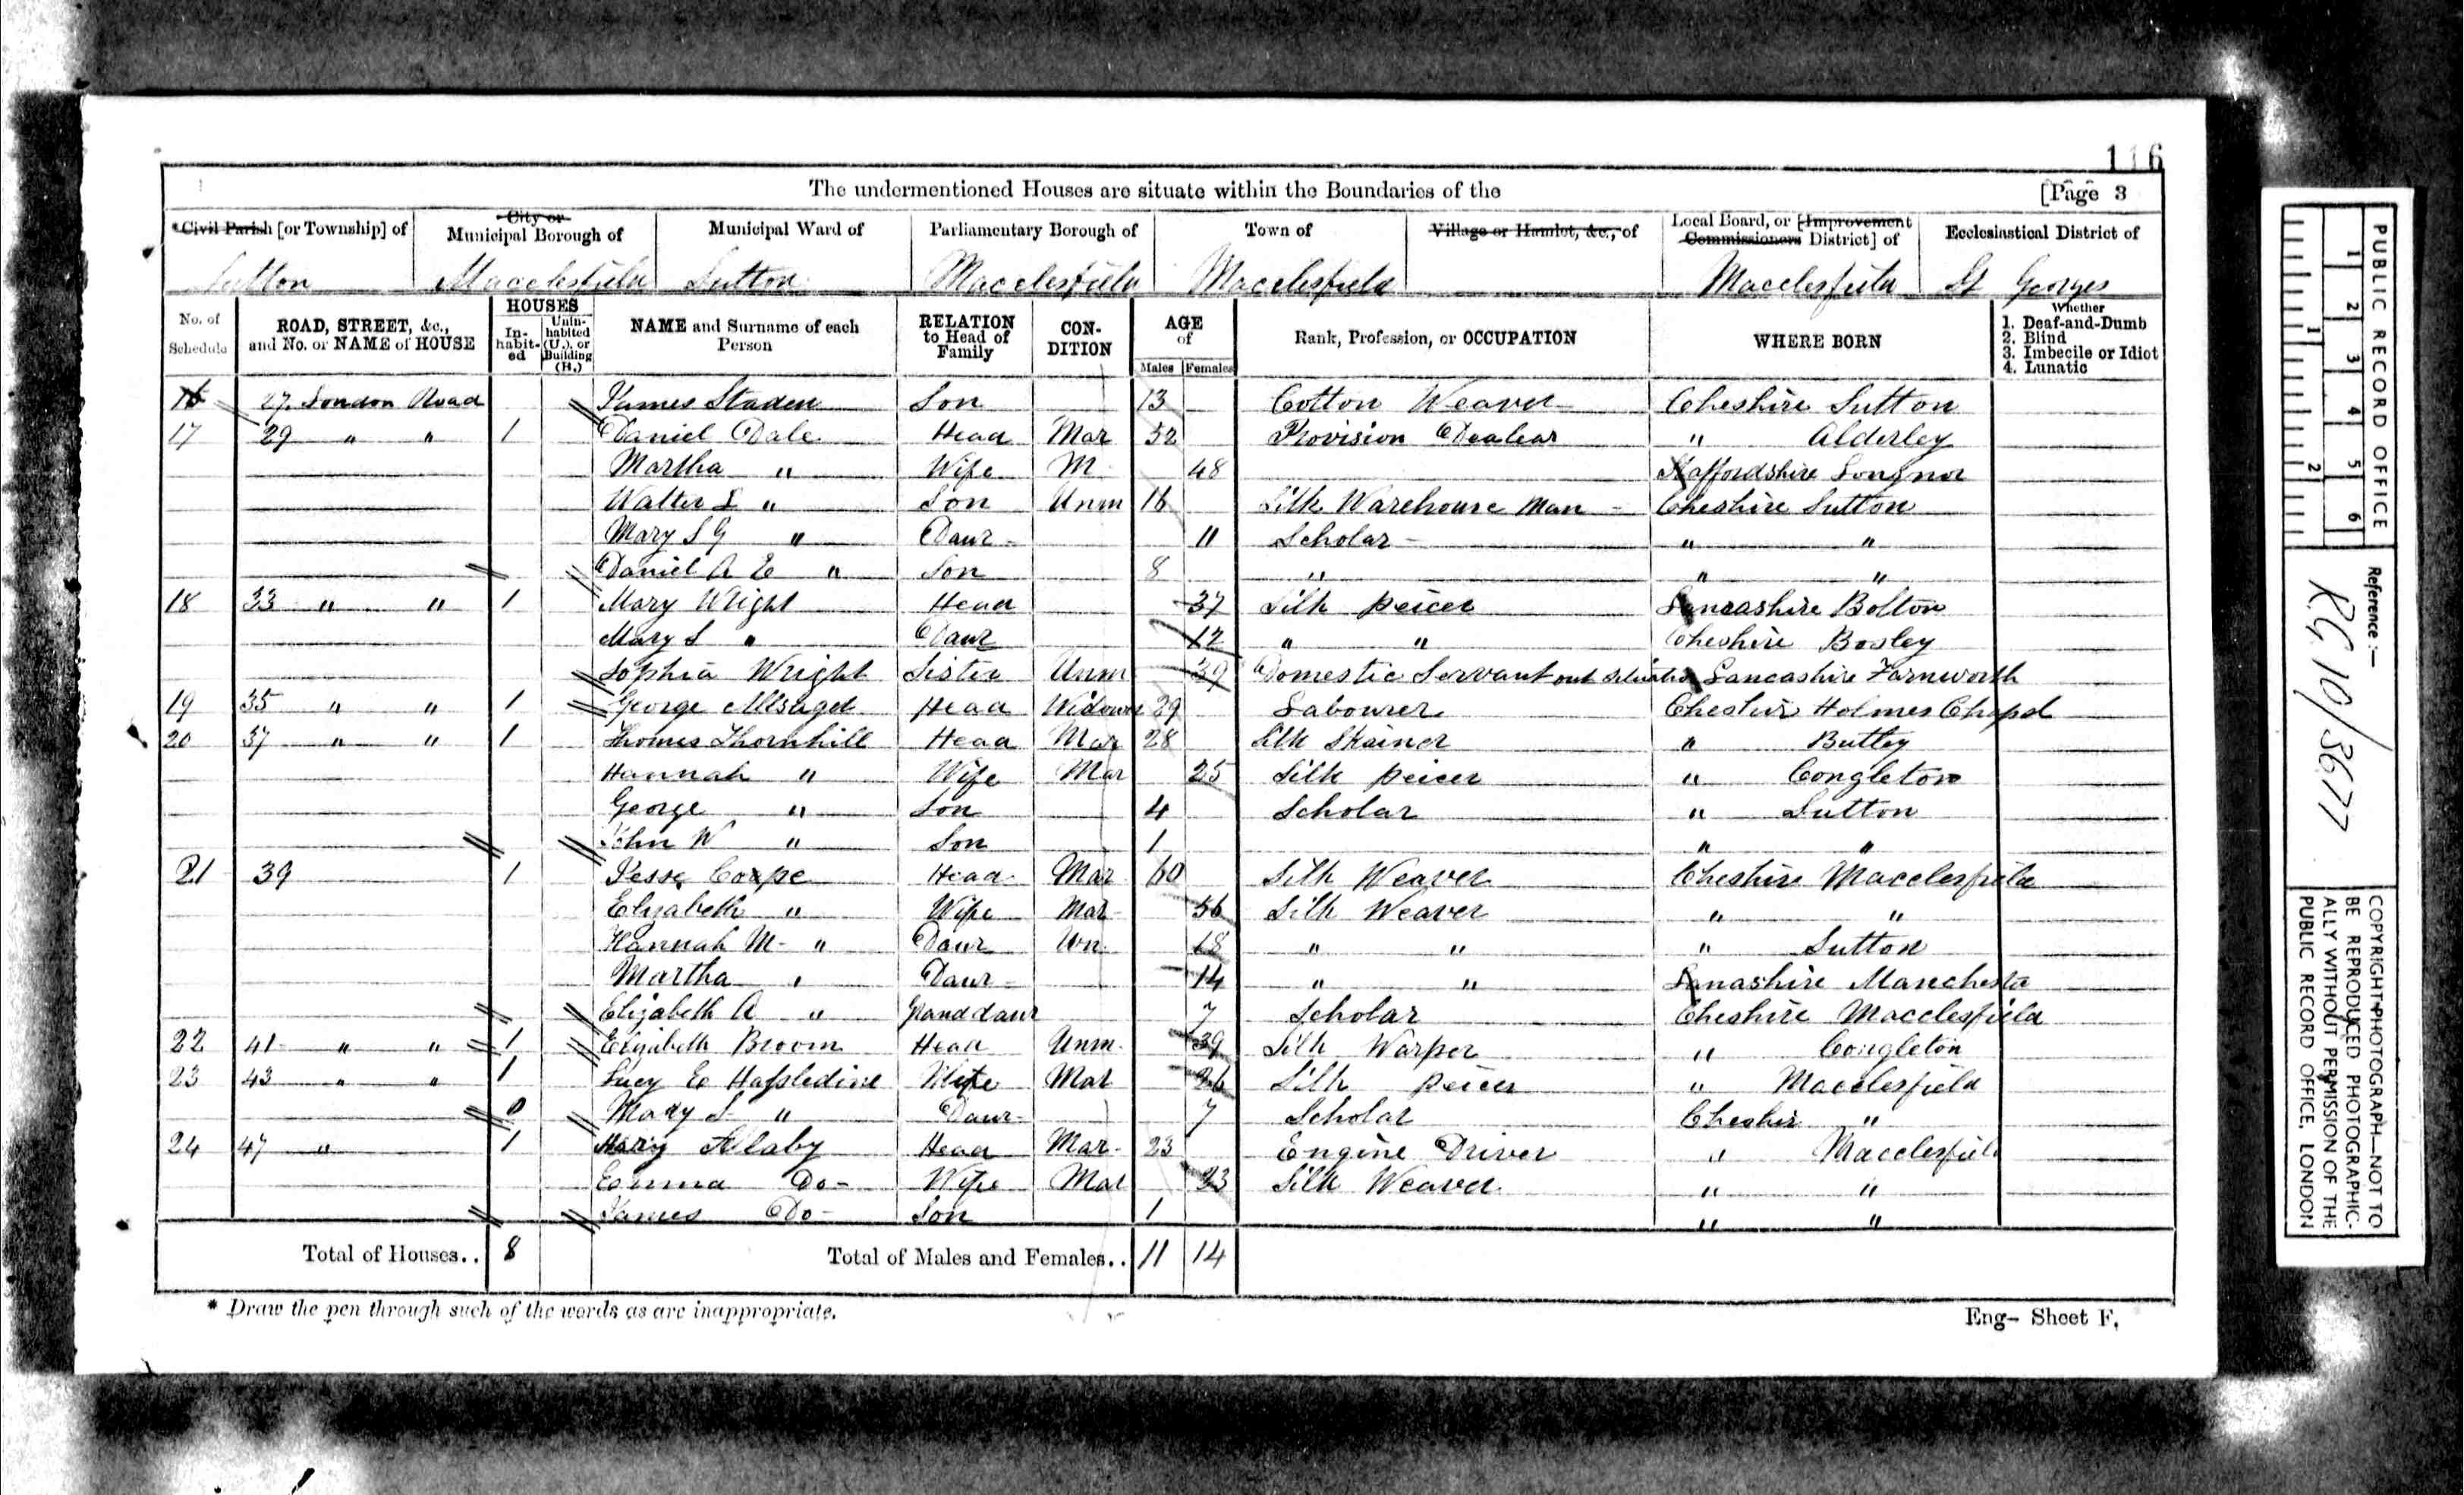 116
The undermentioned Houses are situate within the Boundaries of the [Page 3
*Civil Parish [or Township] of | City or Municipal Borough of | Municipal Ward of | Parliamentary Borough of | Town of | Village or Hamlet, &c., of | Local Board, or [Improvement Commissioners District] of | Ecclesiastical District of
Sutton | Macclesfield | Sutton | Macclesfield | Macclesfield | | Macclesfield | St Georges
No. of Schedule | ROAD, STREET, &c., and No. or NAME of HOUSE | HOUSES In-habit-ed | Unin-habited (U.), or Building (B.) | NAME and Surname of each Person | RELATION to Head of Family | CON-DITION | AGE of Males | Females | Rank, Profession, or OCCUPATION | WHERE BORN | Whether 1. Deaf-and-Dumb 2. Blind 3. Imbecile or Idiot 4. Lunatic
16 27 London Road James Staden Son 13 Cotton Weaver Cheshire Sutton
17 29 " " 1 Daniel Dale Head Mar 52 Provision Dealear " Alderley
Martha " Wife M 48 Staffordshire Longnor
Walter L " Son Unm 16 Silk Warehouse Man Cheshire Sutton
Mary S G " Daur 11 Scholar " "
Daniel A E " Son 8 " " "
18 33 " " 1 Mary Wright Head 37 Silk peicer Lancashire Bolton
Mary S " Daur 12 " " Cheshire Bosley
Sophia Wright Sister Unm 39 Domestic Servant out Lancashire Farnworth
19 35 " " 1 George Head Widower 29 Labourer Cheshire Holmes Chapel
20 37 " " 1 Thomas Thornhill Head Mar 28 Silk Skainer " Butley
Hannah " Wife Mar 25 Silk peicer " Congleton
George " Son 4 Scholar " Sutton
John W " Son 1 " "
21 39 1 Jesse Coxpe Head Mar 60 Silk Weaver Cheshire Macclesfield
Elizabeth " Wife Mar 56 Silk Weaver " "
Hannah M " Daur Un 18 " " " Sutton
Martha " Daur 14 " " Lanashire Manchester
Elizabeth A " Granddaur 7 Scholar Cheshire Macclesfield
22 41 " " 1 Elizabeth Broom Head Unm 39 Silk Warper " Congleton
23 43 " " 1 Lucy E Hassledine Wife Mar 26 Silk peicer " Macclesfield
0 Mary S " Daur 7 Scholar Cheshir "
24 47 " 1 Head Mar 23 Engine Driver " Macclesfield
Emma Do Wife Mar 23 Silk Weaver " "
James Do Son 1 " "
Total of Houses.. 8 Total of Males and Females.. 11 14
* Draw the pen through such of the words as are inappropriate. Eng- Sheet F.
PUBLIC RECORD OFFICE
1 2 3 4 5 6
1 2
Reference:-
R.G. 10/3677
COPYRIGHT PHOTOGRAPH—NOT TO BE REPRODUCED PHOTOGRAPHIC-ALLY WITHOUT PERMISSION OF THE PUBLIC RECORD OFFICE, LONDON